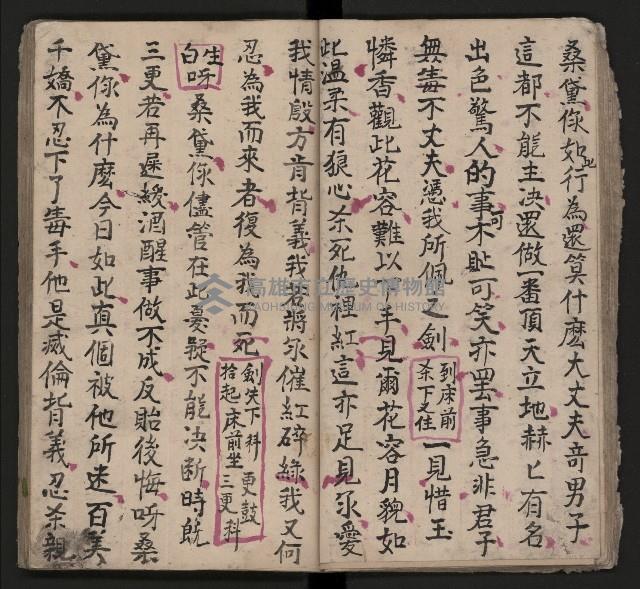 桑黛你如此行為還算什麽大丈夫奇男子
這都不能主决還做一番頂天立地赫匕有名
出色驚人的事不可恥可笑亦罢事急非君子
無毒不丈夫憑我所佩之劍
到床前
杀下又住
一見惜玉
憐香觀此花容難以下手見爾花容月貌如
此温柔有狼心杀死他裡紅這亦足見永愛
我情殷方肯背義我若將永催紅碎綠我又何
忍為我而來者復為我而死
劍失下科 更鼓
拾起 床前坐 三更科
生白
呀桑黛你儘管在此憂疑不能决断時既
三更若再遲緩酒醒事做不成反貽後悔呀桑
黛你為什麽今日如此真個被他所迷百美
千嬌不忍下了毒手他是滅倫背義忍杀親
高雄市立歷史博物館
KAOHSIUNG MUSEUM OF HISTORY